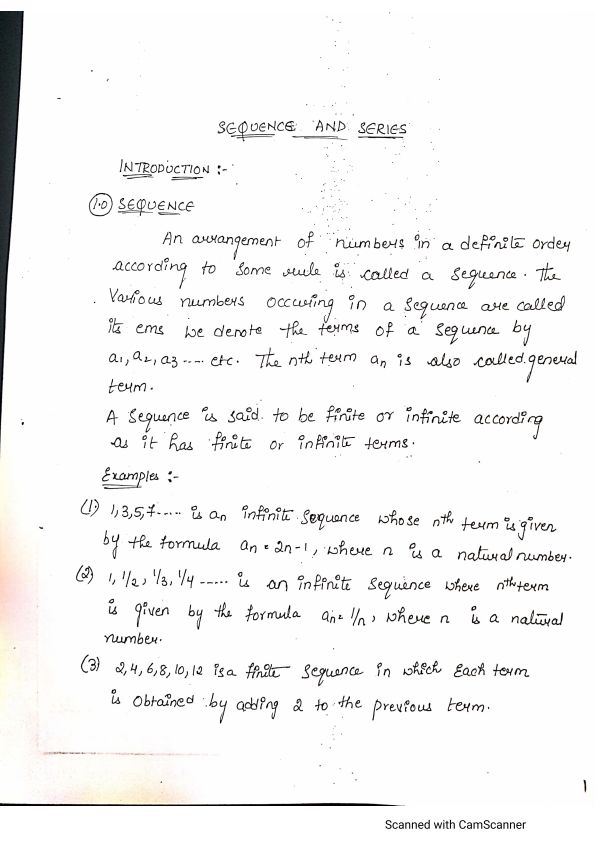 SEQUENCE AND SERIES
INTRODUCTION :-
1.0 SEQUENCE
An arrangement of numbers in a definite order
according to some rule is called a sequence. The
Various numbers occuring in a sequence are called
its ems we denote the terms of a sequence by
a1, a2, a3 .... etc. The nth term an is also called general
term.
A sequence is said to be finite or infinite according
as it has finite or infinite terms.
Examples :-
(1) 1,3,5,7..... is an infinite sequence whose nth term is given
by the formula an = 2n-1, where n is a natural number.
(2) 1, 1/2, 1/3, 1/4 ..... is an infinite sequence where nth term
is given by the formula an = 1/n, where n is a natural
number.
(3) 2,4,6,8,10,12 is a finite sequence in which Each term
is obtained by adding 2 to the previous term.
1
Scanned with CamScanner